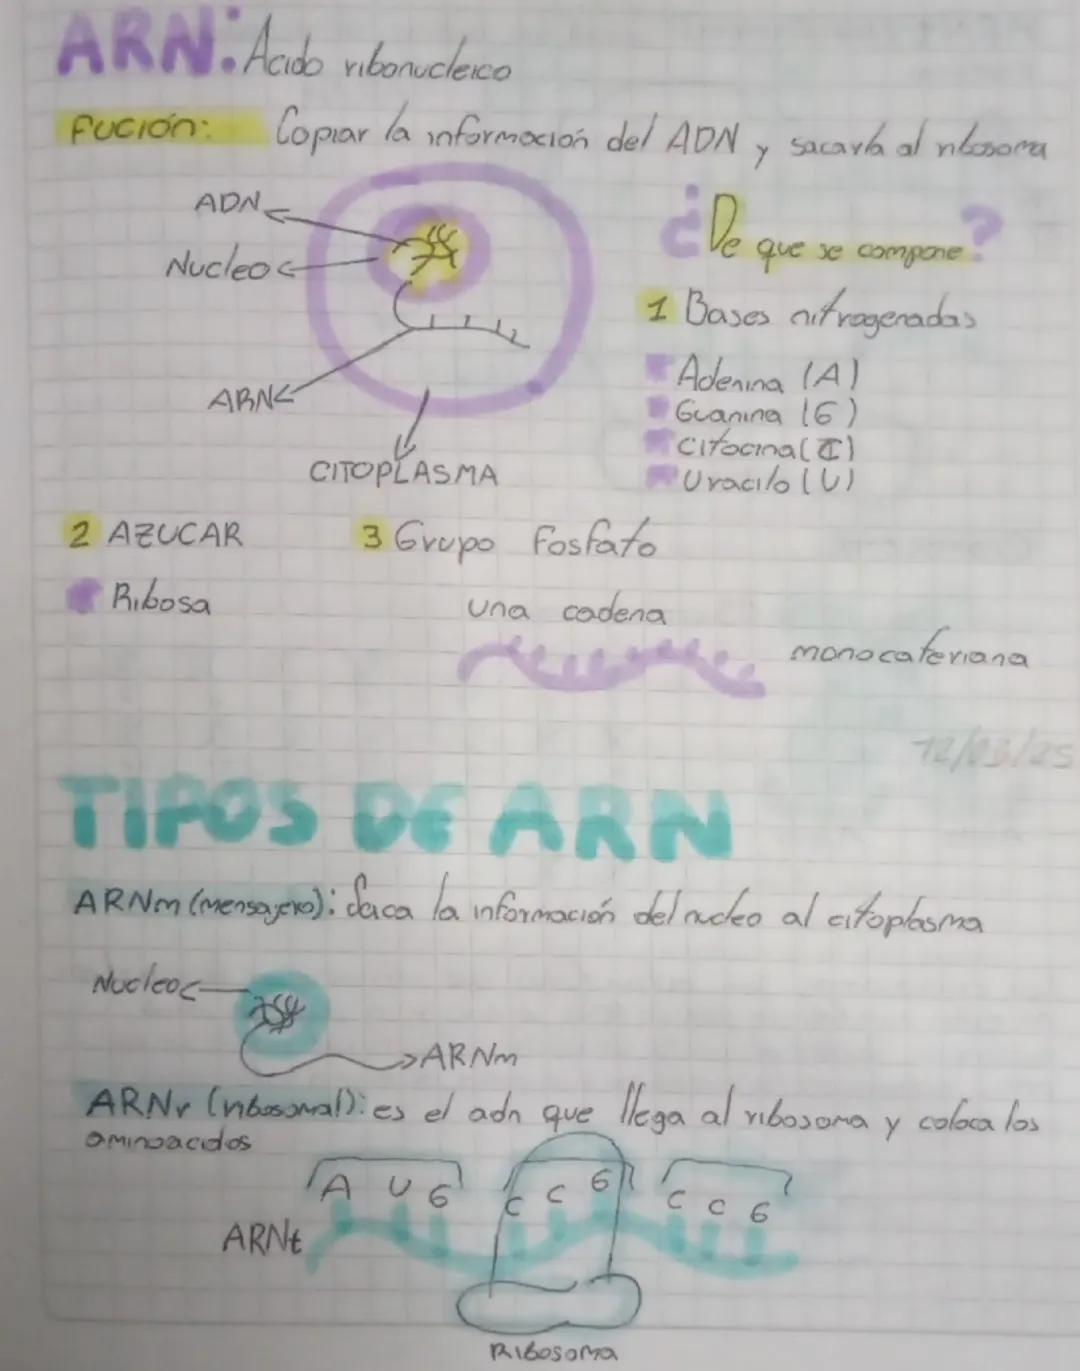 ARN: Acido ribonucleico
Fución: Copiar la información del ADN y sacarla al ribosoma
ADN
Nucleo
ARN
CITOPLASMA
¿De que se compone?
1 Bases nitrogenadas
Adenina (A)
Guanina (G)
Citocina (C)
Uracilo (U)
2 AZUCAR
Ribosa
3 Grupo Fosfato
una cadena
monocateriana
12/03/25
TIPOS DE ARN
ARNm (mensajero): Saca la información del nucleo al citoplasma
Nucleo
ARNm
ARNr (ribosomal): es el adn que llega al ribosoma y coloca los
aminoacidos
A U G C C G C C G
ARNt
Ribosoma